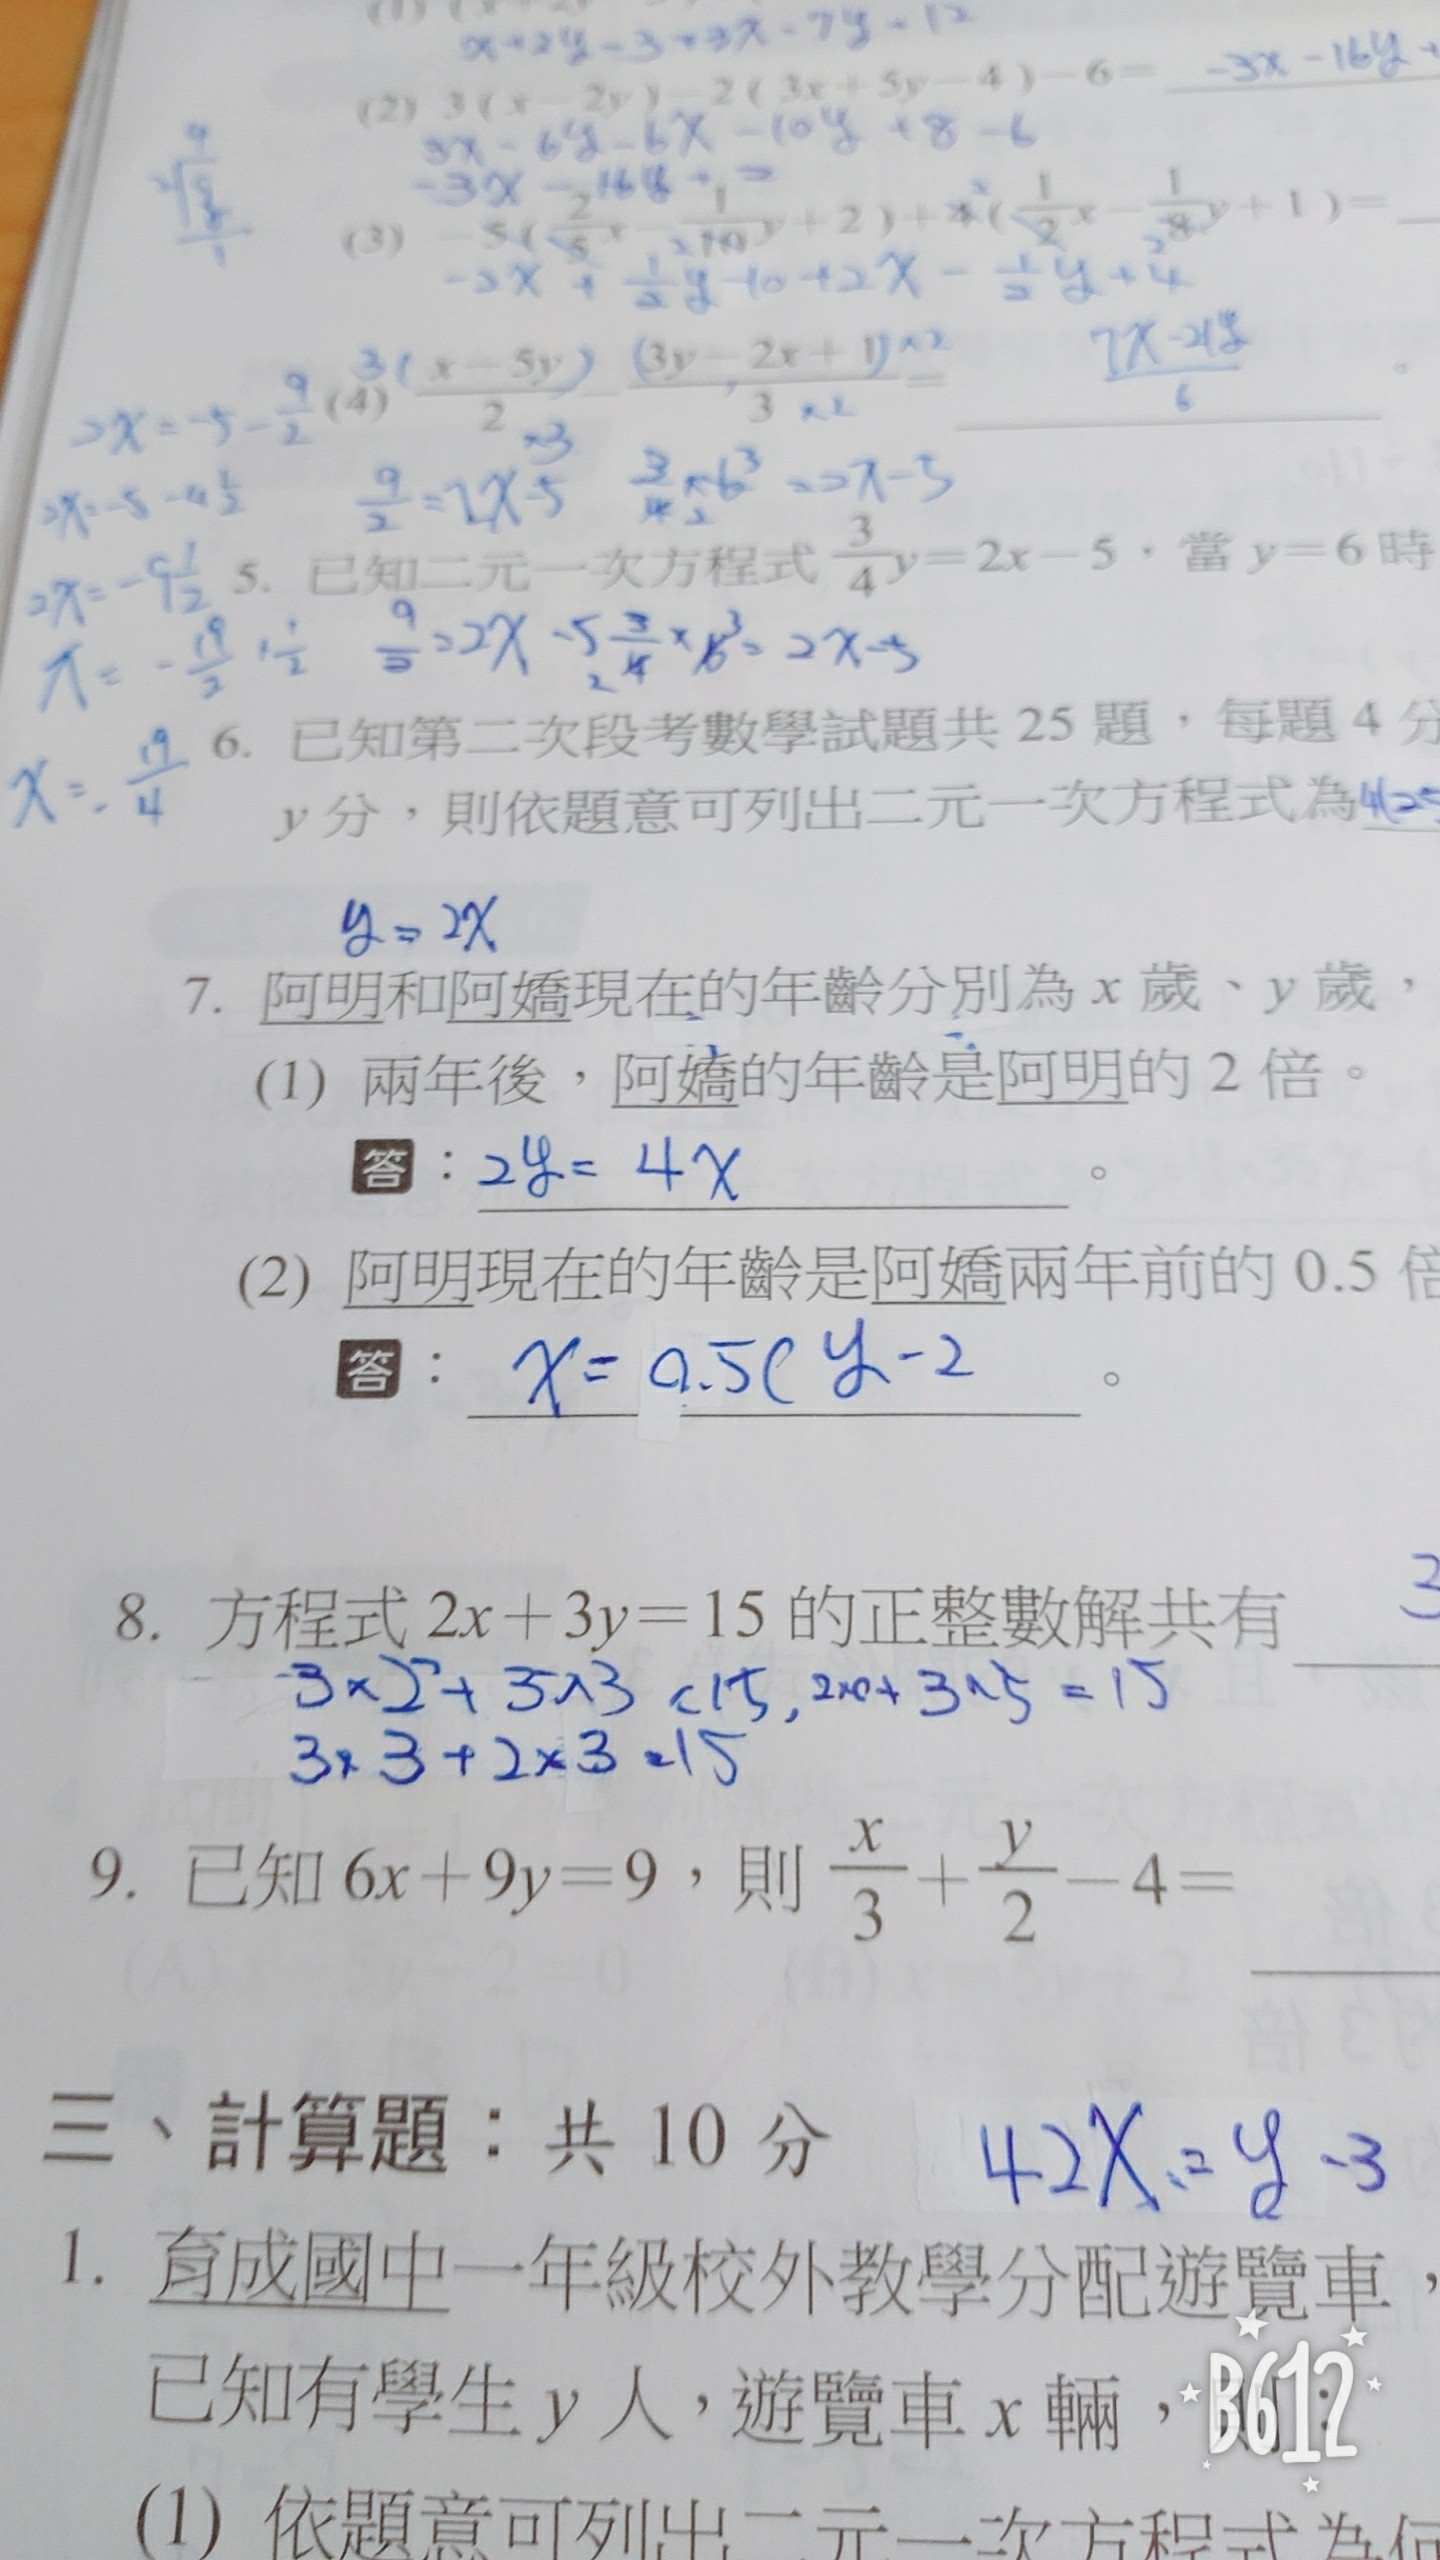 x+2y-3+3x-7y-12
(2) 3(x-2y)-2(3x+5y-4)-6= -3x-16y+
3x-6y-6x-10y+8-6
-3x-16y+2
(3) -5(2/5x-1/10y+2)+4(1/2x-1/8y+1)=
-2x+1/2y-10+2x-1/2y+4
(4) 3(x-5y)/2 ×3 - (3y-2x+1)×2/3 ×2 = 7x-21y/6 。
2x=-5-9/2
2x=-5-4 1/2
9/2=2x-5 3/4×6 3 2 =2x-5
5. 已知二元一次方程式 3/4y=2x-5，當 y=6 時
2x=-9 1/2
9/2=2x-5 3/4×6 3 2 =2x-5
x=-19/2×1/2
6. 已知第二次段考數學試題共 25 題，每題 4 分
x=-19/4
y 分，則依題意可列出二元一次方程式為4(25
y=2x
7. 阿明和阿嬌現在的年齡分別為 x 歲、y 歲，
(1) 兩年後，阿嬌的年齡是阿明的 2 倍。
答：2y=4x。
(2) 阿明現在的年齡是阿嬌兩年前的 0.5 倍
答：x=0.5(y-2。
8. 方程式 2x+3y=15 的正整數解共有
3×2+3×3=15, 2×0+3×5=15
3×3+2×3=15
9. 已知 6x+9y=9，則 x/3+y/2-4=
三、計算題：共 10 分
42x=y-3
1. 育成國中一年級校外教學分配遊覽車，
已知有學生 y 人，遊覽車 x 輛，則：
B612
(1) 依題意可列出二元一次方程式為何